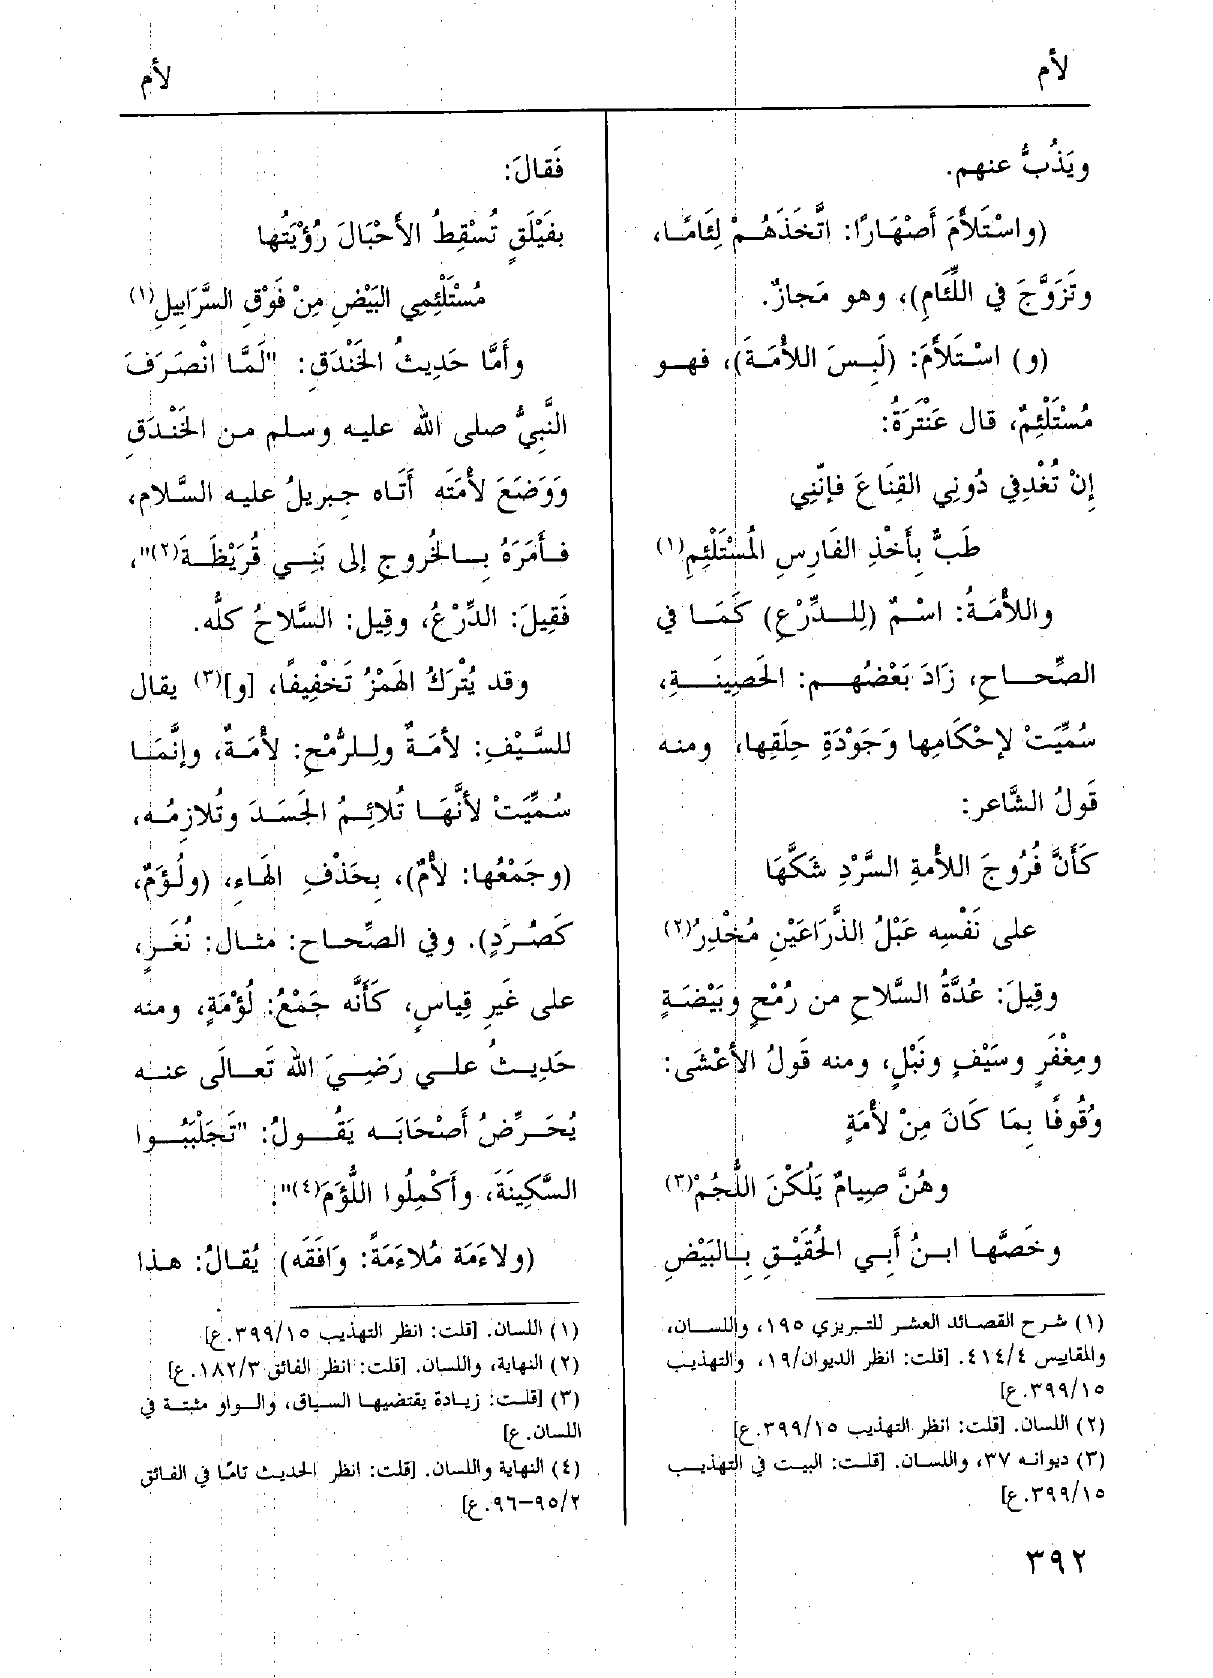 لأم
لأم
ويَذُبُّ عنهم.
(واسْتَلأَمَ أَصْهَارًا: اتَّخَذَهُمْ لِئَامًا،
وتَزَوَّجَ في اللِّئَامِ)، وهو مَجازٌ.
(و) اسْتَلأَمَ: (لَبِسَ اللأْمَةَ)، فهو
مُسْتَلْئِمٌ، قال عَنْتَرَةُ:
إِنْ تُغْدِفِي دُونِي القِنَاعَ فإنّنِي
طَبٌّ بِأَخْذِ الفَارِسِ المُسْتَلْئِمِ(١)
واللأْمَةُ: اسْمٌ (لِلدِّرْعِ) كَمَا في
الصِّحاحِ، زَادَ بَعْضُهم: الحَصِينَةِ،
سُمِّيَتْ لإِحْكامِها وَجَوْدَةِ حِلَقِها، ومنه
قَولُ الشَّاعر:
كَأَنَّ فُرُوجَ اللأْمةِ السَّرْدِ شَكَّهَا
على نَفْسِه عَبْلُ الذِّرَاعَيْنِ مُخْدِرُ(٢)
وقِيلَ: عُدَّةُ السِّلاحِ من رُمْحٍ وبَيْضَةٍ
ومِغْفَرٍ وسَيْفٍ ونَبْلٍ، ومنه قَولُ الأَعْشَى:
وُقُوفًا بِمَا كَانَ مِنْ لأْمَةٍ
وهُنَّ صِيامٌ يَلُكْنَ اللُّجُمْ(٣)
وخَصَّها ابنُ أَبِي الحُقَيْقِ بِالبَيْضِ
(١) شرح القصائد العشر للتبريزي ١٩٥، واللسان،
والمقاييس ٤١٤/٤. [قلت: انظر الديوان/١٩، والتهذيب
٣٩٩/١٥.ع]
(٢) اللسان. [قلت: انظر التهذيب ٣٩٩/١٥.ع]
(٣) ديوانه ٣٧، واللسان. [قلت: البيت في التهذيب
٣٩٩/١٥.ع]
فَقالَ:
بفَيْلَقٍ تُسْقِطُ الأَحْبَالَ رُؤْيَتُها
مُسْتَلْئِمِي البَيْضِ مِنْ فَوْقِ السَّرَابِيلِ(١)
وأَمَّا حَدِيثُ الخَنْدَقِ: "لَمَّا انْصَرَفَ
النَّبِيُّ صلى الله عليه وسلم من الخَنْدَقِ
وَوَضَعَ لأْمَتَه أَتَاه جِبريلُ عليه السَّلام،
فأَمَرَهُ بالخُروجِ إلى بَنِي قُرَيْظَةَ(٢)"،
فَقِيلَ: الدِّرْعُ، وقِيل: السِّلاحُ كلُّه.
وقد يُتْرَكُ الهَمْزُ تَخْفِيفًا، [و](٣) يقال
للسَّيْفِ: لأمَةٌ ولِلرُّمْحِ: لأْمَةٌ، وإنَّمَا
سُمِّيَتْ لأَنَّهَا تُلائِمُ الجَسَدَ وتُلازِمُه،
(وجَمْعُها: لأْمٌ)، بحَذْفِ الهَاءِ، (ولُؤَمٌ،
كَصُرَدٍ). وفي الصِّحاح: مثال: نُغَرٍ،
على غَيرِ قِياسٍ، كَأَنَّه جَمْعُ: لُؤْمَةٍ، ومنه
حَدِيثُ علي رَضِيَ الله تَعالَى عنه
يُحَرِّضُ أَصْحَابَه يَقُولُ: "تَجَلْبَبُوا
السَّكِينَةَ، وأَكْمِلُوا اللُّؤَمَ(٤)".
(ولاءَمَة مُلاءَمَةً: وَافَقَه) يُقالُ: هذا
(١) اللسان. [قلت: انظر التهذيب ٣٩٩/١٥.ع]
(٢) النهاية، واللسان. [قلت: انظر الفائق ١٨٢/٣.ع]
(٣) [قلت: زيادة يقتضيها السياق، والواو مثبتة في
اللسان.ع]
(٤) النهاية واللسان. [قلت: انظر الحديث تامًا في الفائق
٩٥/٢–٩٦.ع]
٣٩٢